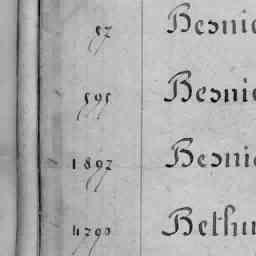 57 Besnie
595 Besnie
1897 Besnie
4790 Bethu